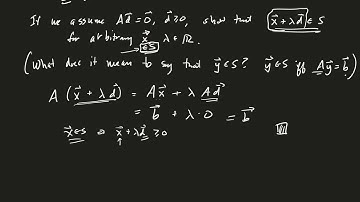 If we assume A d⃗ = 0⃗, d⃗ ≥ 0, show that x⃗ + λd⃗ ∈ S
for arbitrary x⃗ ∈ S λ ∈ ℝ.
(What does it mean to say that y⃗ ∈ S? y⃗ ∈ S iff A y⃗ = b⃗.)
A (x⃗ + λd⃗) = A x⃗ + λ A d⃗
= b⃗ + λ · 0 = b⃗
x⃗ ∈ S x⃗ + λd⃗ ≥ 0